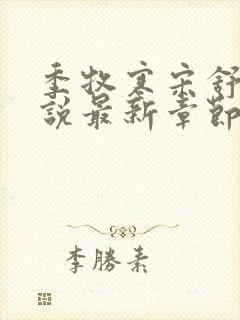 季牧寒宋舒
說最新章節
李勝素